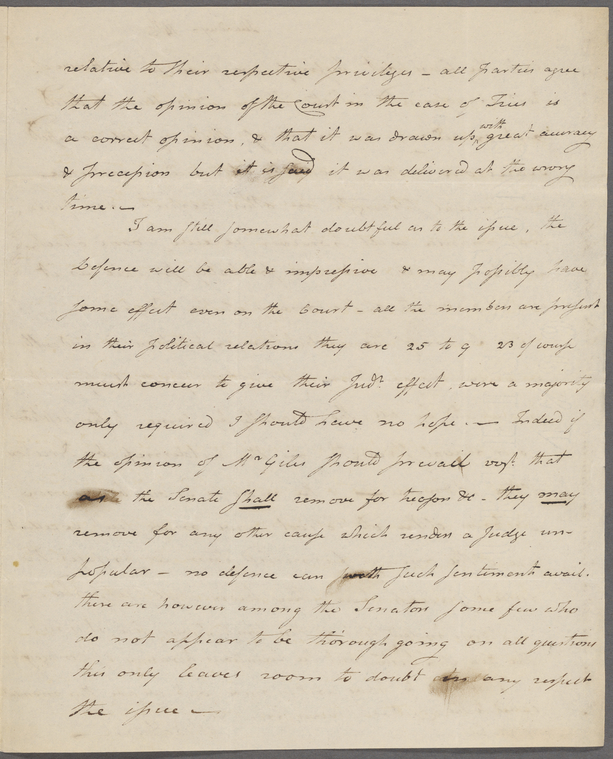 relative to their respective privileges – all parties agree
that the opinion of the Court in the case of Fries is
a correct opinion, & that it was drawn up with great accuracy
& precepion but it is said it was delivered at the wrong
time. —
I am still somewhat doubtful as to the issue, the
Defence will be able & impressive & may possibly have
some effect even on the Court – all the members are present
in their political relations they are 25 to 9 23 of course
must concur to give their Judt. effect, were a majority
only required I should have no hope. — Indeed if
the opinion of Mr Giles should prevail vizt. that
the Senate shall remove for treason &c – they may
remove for any other cause which renders a Judge un-
popular – no defence can with such sentiments avail.
there are however among the Senators some few who
do not appear to be thorough going on all questions
this only leaves room to doubt in any respect
the issue —